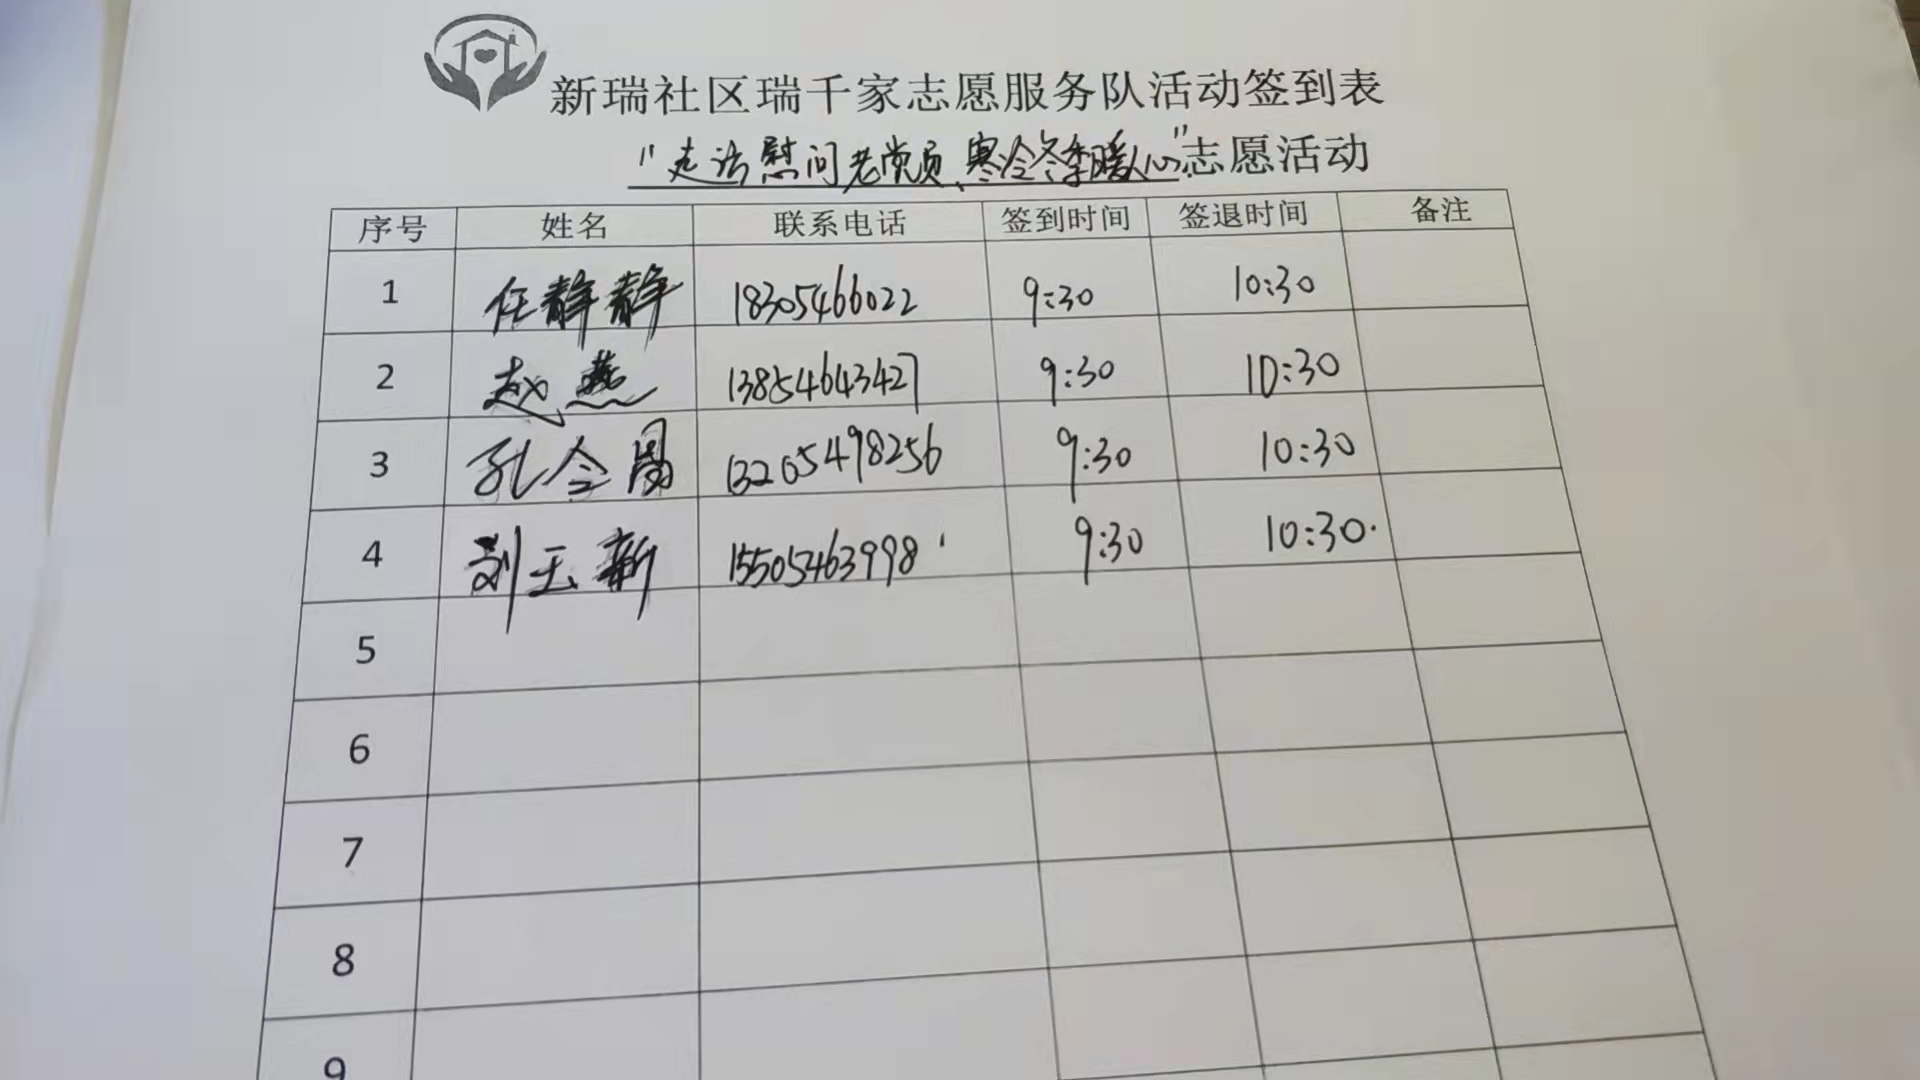 新瑞社区瑞千家志愿服务队活动签到表
"走访慰问老党员、寒冷冬季暖人心"志愿活动
序号 姓名 联系电话 签到时间 签退时间 备注
1 任静静 18305466022 9:30 10:30
2 赵燕 13854643427 9:30 10:30
3 孔令 13205498256 9:30 10:30
4 刘玉新 15505463998 9:30 10:30
5
6
7
8
9